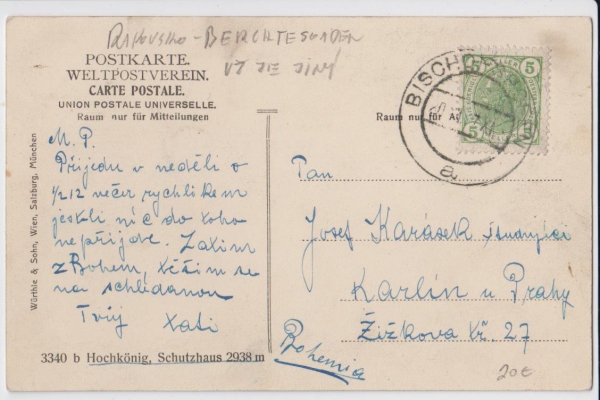 RAKOUSKO - BERCHTESGADEN
UŽ JE JINÝ
POSTKARTE.
WELTPOSTVEREIN.
CARTE POSTALE.
UNION POSTALE UNIVERSELLE.
Raum nur für Mitteilungen
M. P.
Přijedu v neděli o
1/2 12 večer rychlíkem
jestli nic do toho
nepřijde. Zatím
z Bohem, těším se
na schledanou
Tvůj
Würthle & Sohn, Wien, Salzburg, München
3340 b Hochkönig, Schutzhaus 2938 m
Raum nur für
BISCH
a
5
5
5
Pan
Josef Karásek, študující
Karlín u Prahy
Žižkova tř. 27
Bohemia
20€